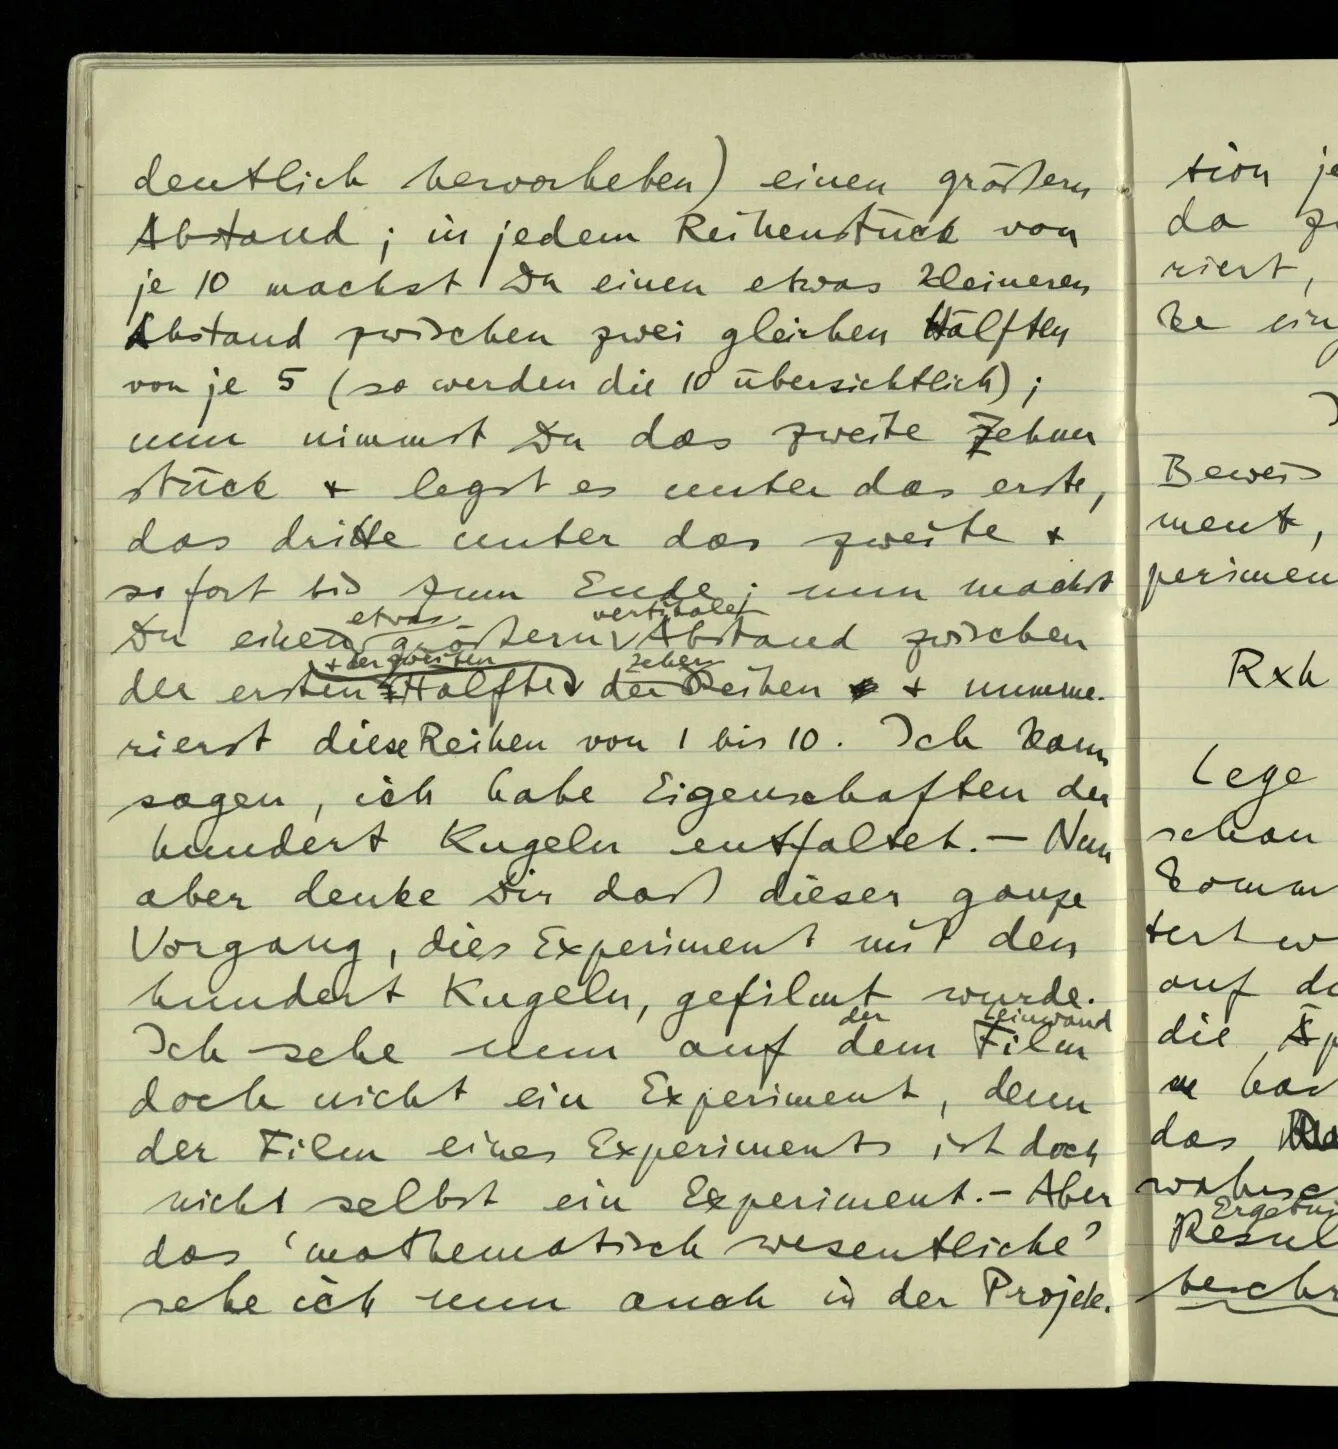 deutlich hervorheben) einen größern
Abstand; in jedem Reihenstück von
je 10 machst Du einen etwas kleineren
Abstand zwischen zwei gleichen Hälften
von je 5 (so werden die 10 übersichtlich);
nun nimmst Du das zweite Zehner
stück + legst es unter das erste,
das dritte unter das zweite +
so fort bis zum Ende; nun machst
etwas vertikalen
Du einen größern Abstand zwischen
+ der zweiten zehn
der ersten Hälfte der Reihen + numme-
rierst diese Reihen von 1 bis 10. Ich kann
sagen, ich habe Eigenschaften der
hundert Kugeln entfaltet. – Nun
aber denke Dir daß dieser ganze
Vorgang, dies Experiment mit den
hundert Kugeln, gefilmt wurde.
der Leinwand
Ich sehe nun auf dem Film
doch nicht ein Experiment, denn
der Film eines Experiments ist doch
nicht selbst ein Experiment. – Aber
das 'mathematisch wesentliche'
sehe ich nun auch in der Projek-
tion je
da
riert,
ke
Beweis
ment,
perimen
Rxh
Lege
schon
komm
tert w
auf d
die
das
Ergebni
Resul
beschr